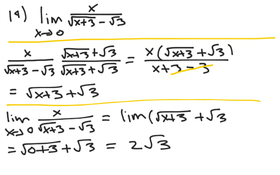 19) lim x→0 x/(√x+3 − √3)
x/(√x+3 − √3) (√x+3 + √3)/(√x+3 + √3) = x(√x+3 + √3)/(x+3−3)
= √x+3 + √3
lim x→0 x/(√x+3 − √3) = lim(√x+3 + √3
= √0+3 + √3 = 2√3